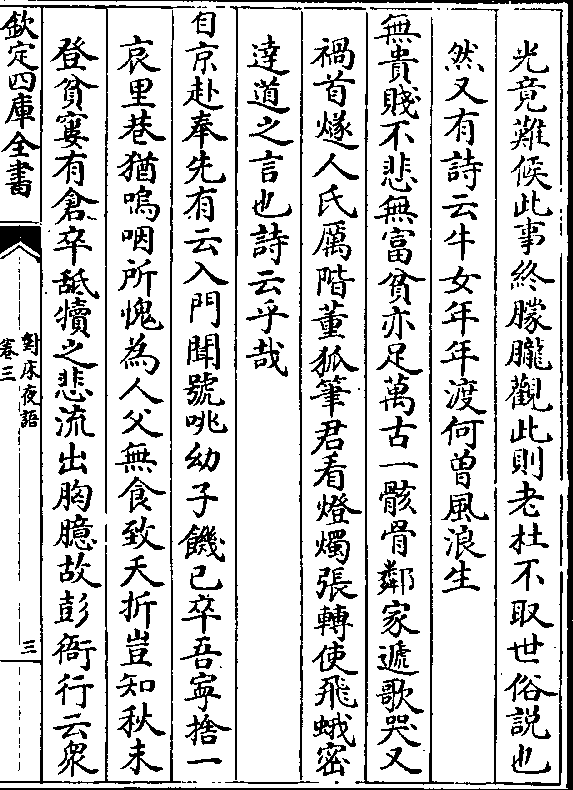 光竟難候此事終朦朧觀此則老杜不取世俗説也
然又有詩云牛女年年渡何曾風浪生
無貴賤不悲無富貧亦足萬古一骸骨鄰家遞歌哭又
禍首燧人氏厲階董狐筆君看燈燭張轉使飛蛾密
達道之言也詩云乎哉
自京赴奉先有云入門聞號咷幼子饑已卒吾寧捨一
哀里巷猶嗚咽所愧為人父無食致夭折豈知秋未
登貧窶有倉卒舐犢之悲流出胸臆故彭衙行云衆
欽定四庫全書
對牀夜語
卷三
三